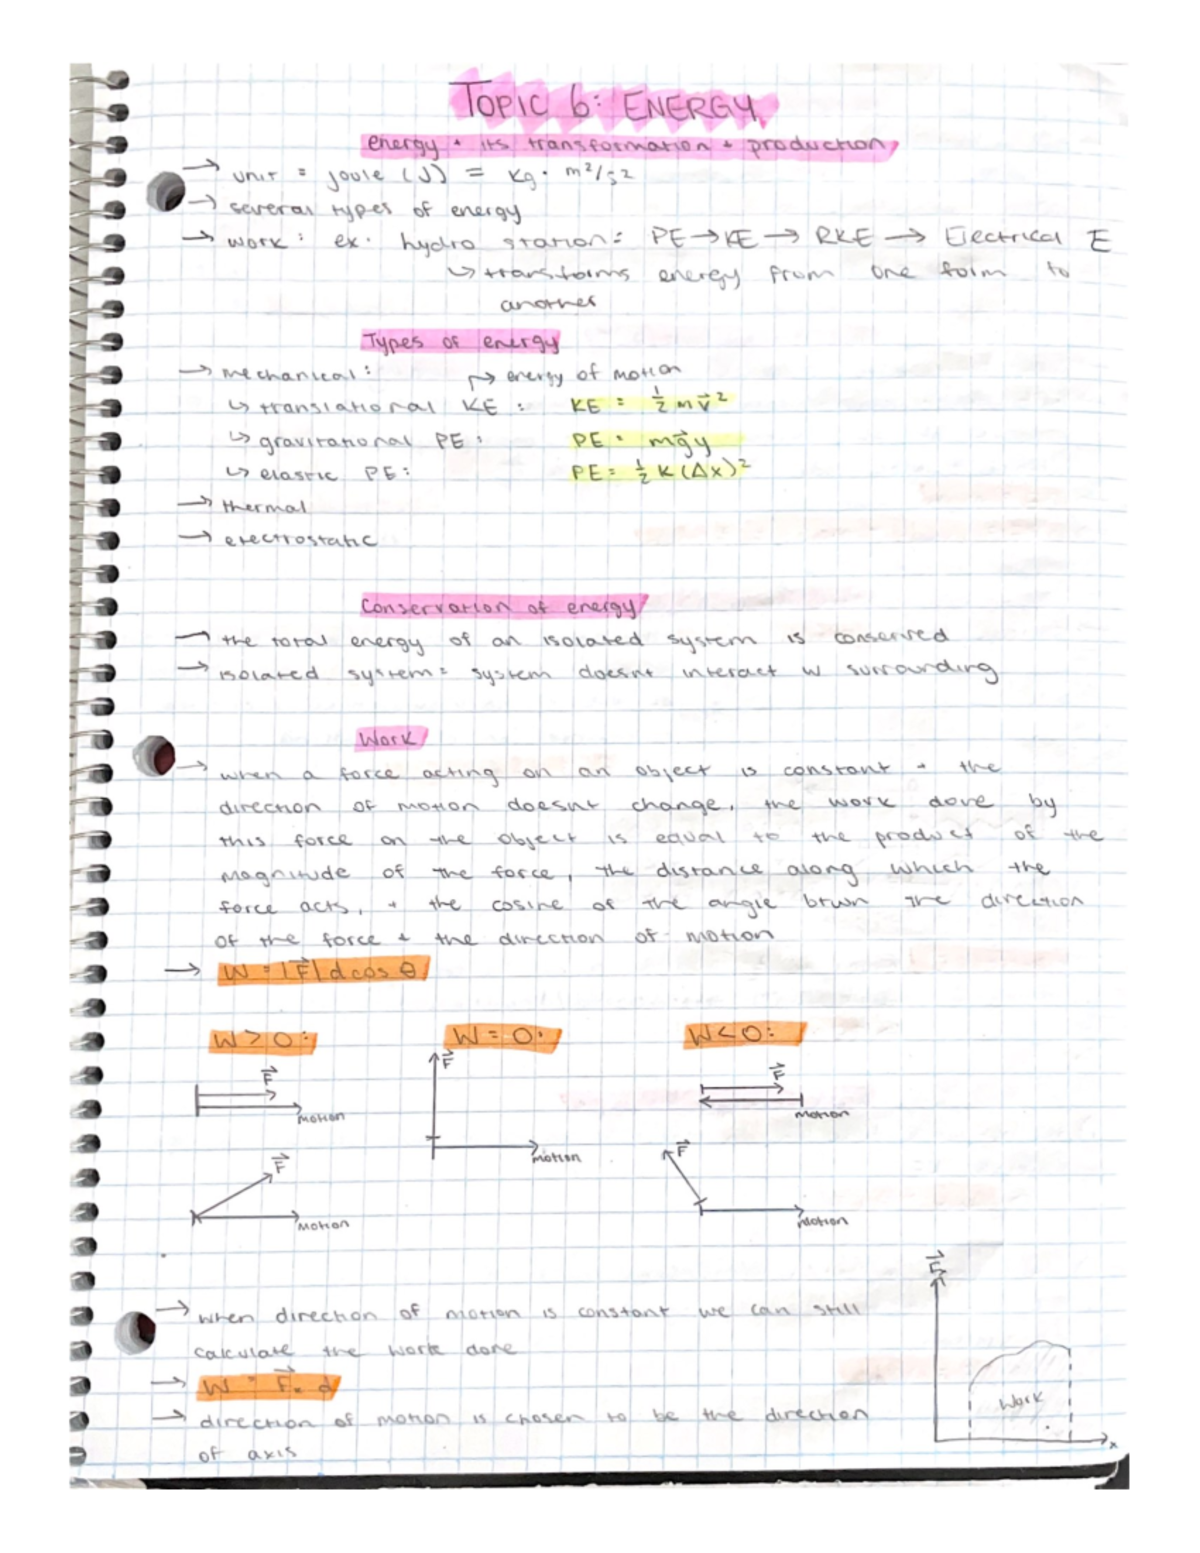 TOPIC 6: ENERGY
energy + its transformation + production
→ unit = joule (J) = kg · m²/s²
→ several types of energy
→ work: ex. hydro station: PE → KE → RKE → Electrical E
↳ transforms energy from one form to
another
Types of energy
→ mechanical: ↱ energy of motion
↳ translational KE: KE = ½ m v⃗²
↳ gravitational PE: PE = m g⃗ y
↳ elastic PE: PE = ½ K (Δx)²
→ thermal
→ electrostatic
Conservation of energy
→ the total energy of an isolated system is conserved
→ isolated system = system doesnt interact w surrounding
Work
→ when a force acting on an object is constant + the
direction of motion doesnt change, the work done by
this force on the object is equal to the product of the
magnitude of the force, the distance along which the
force acts, + the cosine of the angle btwn the direction
of the force + the direction of motion
→ W = |F⃗| d cos θ
W > 0: W = 0: W < 0:
F⃗ F⃗ F⃗
motion motion
F⃗ motion F⃗
motion motion
F⃗x
→ when direction of motion is constant we can still
calculate the work done
→ W = F⃗x d
→ direction of motion is chosen to be the direction
of axis
Work
x